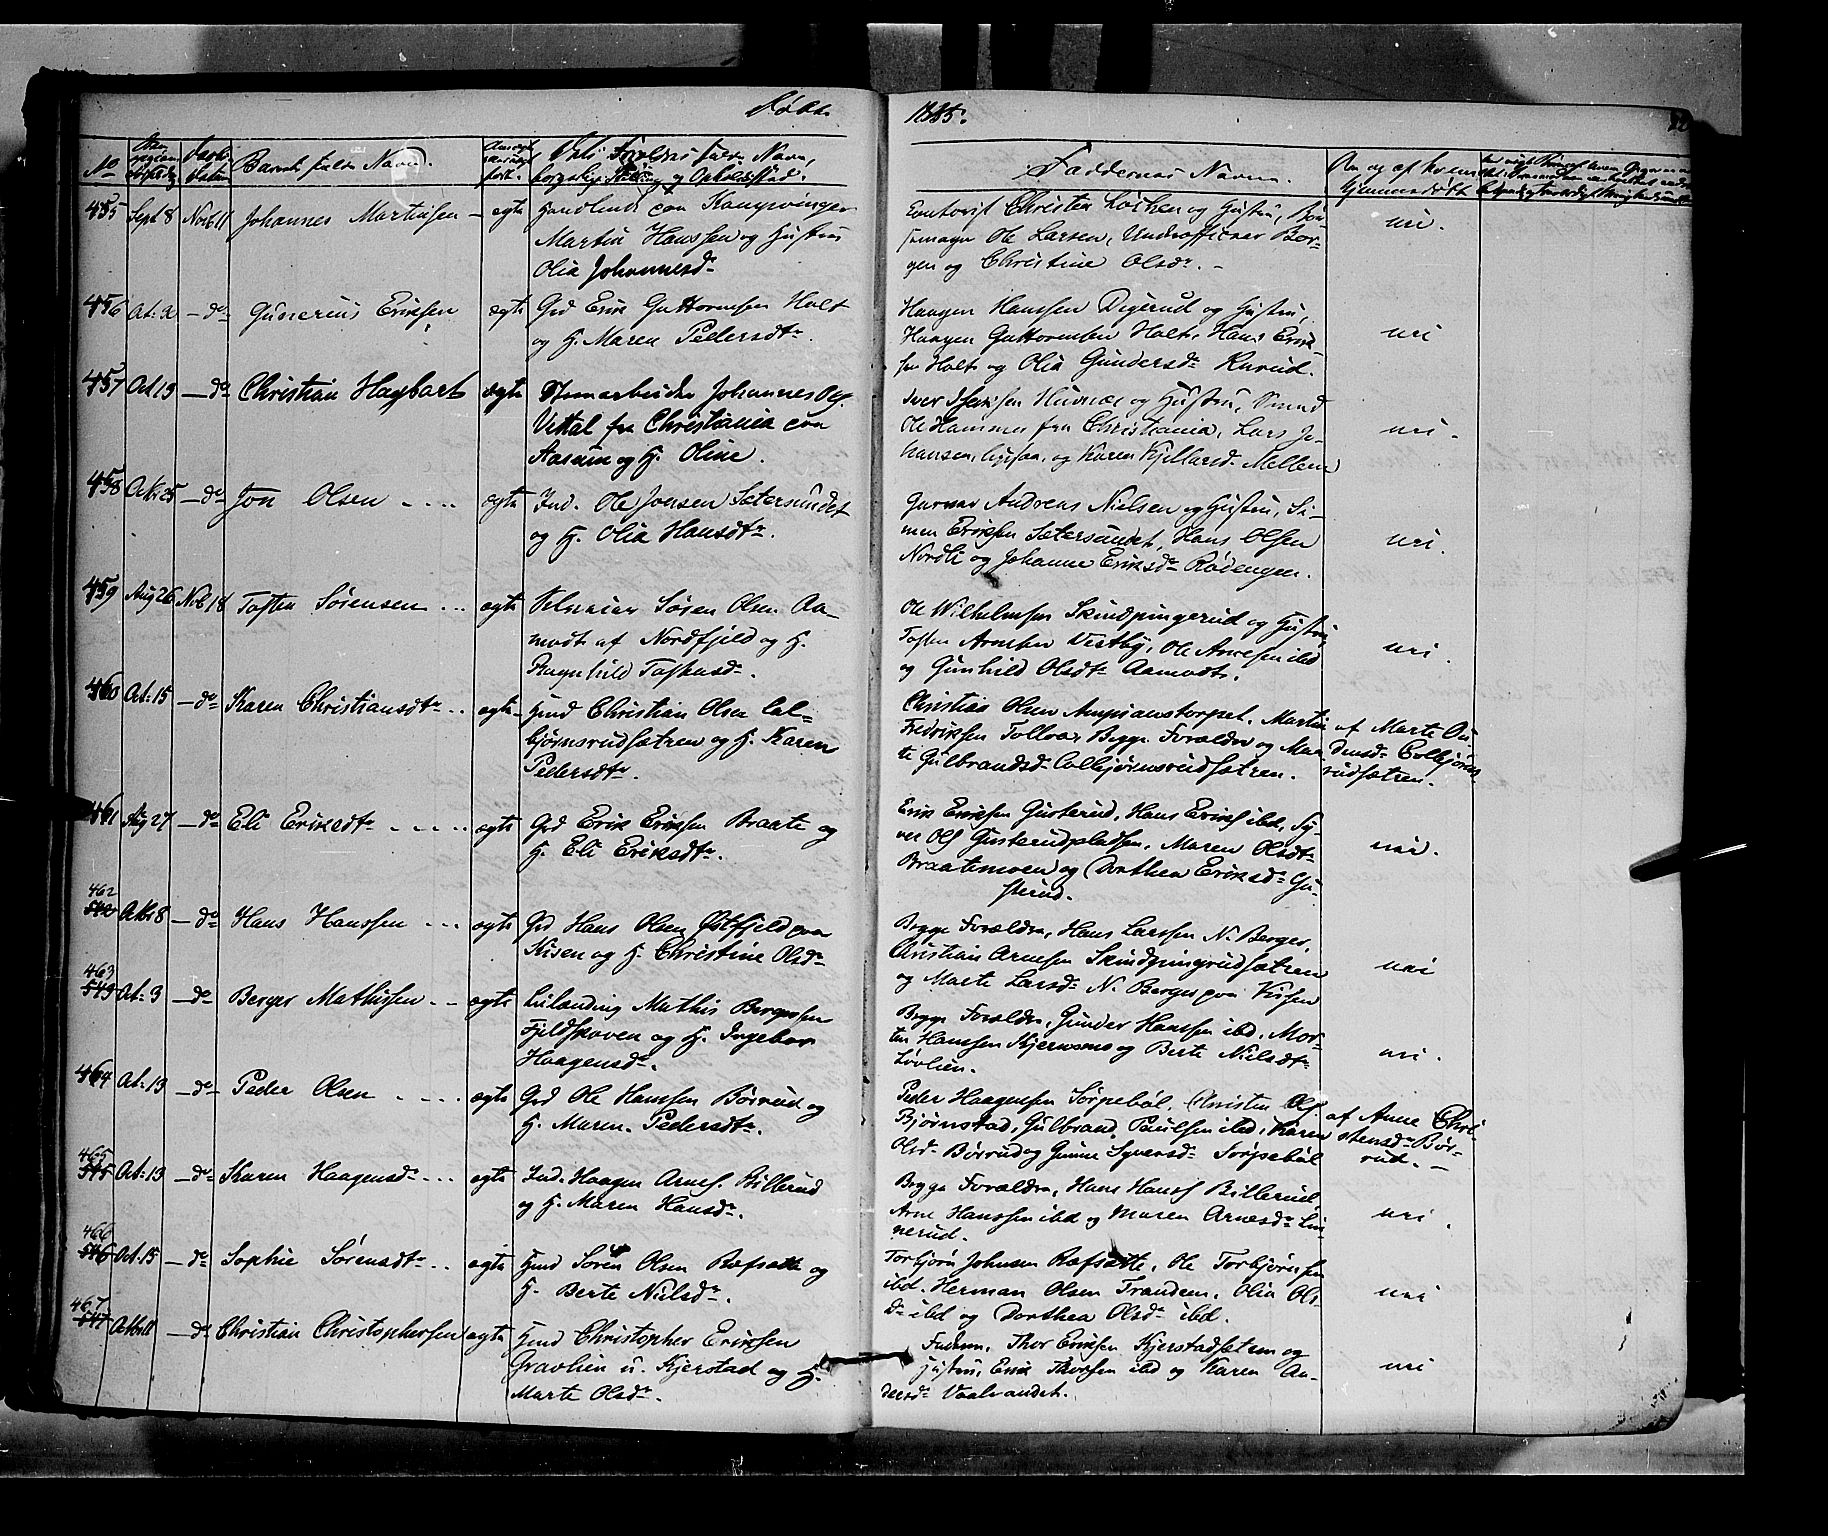 Døbte
1885.
No
Barnets fulde Navn.
Faddernes Navne.
455 Sept 8 Novb 11 Johannes Martinsen – ægte
Martin Hanssen og Hustru
Olia Johannesdr
Christen Lochen og Hustru,
Ole Larsen, Underofficer Bor-
gen og Christine Olsdr. –
nei.
456 Oct: 2 – do Gunerius Eriksen ægte Grd Erik Guttormsen Holt
og H. Maren Pedersdtr.
Haagen Hanssen Digerud og Hustru,
Haagen Guttormsen Holt, Hans Erik-
sen Holt og Olia Gundersdr Rurud.
nei
457 Oct 13 – do Christian Hagbart ægte Johannes Ols.
Vittal fra Christiania
Aasum og H. Oline.
Iver og Hustru,
Ole Hammer fra Christiania, Lars Jo-
hansen, og Karen Kjellarsd. Mellem
nei.
458 Octb 25 – do Jon Olsen .... ægte Ind. Ole Jonsen Sætersundet
og H. Olia Hansdtr.
Gunnar Andreas Nielsen og Hustru, Si-
men Eriksen Sætersundet, Hans Olsen
Nordli og Johanne Eriksdr Rødengen.
nei.
459 Aug 26 Nvb 18 Tosten Sørensen ... ægte Selveier Søren Olsen Aa-
modt af Nordfjeld og H.
Ragnhild Tostensdr.
Ole Wilhelmsen Skindpungerud og Hustru
Tosten Arnesen Vestby, Ole Arnesen ibd
og Gunhild Olsdtr Aamodt.
nei.
460 Oct: 15 – do Karen Christiansdtr .. ægte Hmd Christian Olsen Col-
bjørnsrudsætren og H. Karen
Pedersdtr.
Christian Olsen Ampianstorpet, Martin
Fredriksen Tollvær, Begge Forældre og Mar-
te Gulbrandsd. Colbjørnsrudsætren.
af Marte Au-
densdr Colbjørns-
rudsætren.
461 Aug 27 – do Eli Eriksdtr ..... ægte Grd Erik Eriksen Braate og
H. Eli Eriksdtr.
Erik Eriksen Gusterud, Hans Eriks ibd, Sy-
ver Ols Gusterudpladsen, Maren Olsdtr
Braatemoen og Dorthea Eriksdr Gu-
sterud.
nei.
462
542 Octb 8 – do Hans Hanssen ... ægte Grd Hans Olsen Østfjeld paa
Kisen og H. Christine Olsdr
Begge Forældre, Hans Larssen N. Berger,
Christian Arnesen Skindpungrudsætren
og Marte Larsdr N. Berger paa Kissen
nei
463
543 Oct: 3 – do Berger Mathissen .. ægte Leilænding Mathis Bergersen
Fjeldskoven og H. Ingebor
Haagensdr.
Begge Forældre, Gunder Hanssen ibd, Mor-
ten Hanssen Kjernsmo og Berte Nielsdtr
Løvlien.
nei.
464 Oct: 13 – do Peder Olsen .... ægte Grd Ole Hanssen Børrud og
H. Maren Pedersdtr.
Peder Haagensen Sørpebøl, Christen Ols.
Bjørnstad, Gulbrand Paulsen ibd, Karen
Olsdr Børrud og Gunne Syversdr Sørpebøl
af Anne Chri-
stensdr Bør-
rud. –
465
545 Oct: 13 – do Karen Haagensdr ... ægte Ind. Haagen Arnes. Billerud
og H. Maren Hansdr.
Begge Forældre, Hans Hans Billerud,
Arne Hanssen ibd og Maren Arnesdr Lin-
nerud.
nei.
466
546 Oct. 15 – do Sophie Sørensdtr .. ægte Hmd Søren Olsen Ræfsætte og
H. Berte Nielsdr.
Torbjørn Johnsen Ræfsætte, Ole Torbjørnsen
ibd. Herman Olsen Tranden, Olia Ols-
dr ibd og Dorthea Olsdr ibd.
nei
467
547 Octb 11 – do Christian Christophersen ægte Hmd Christopher Eriksen
Gravlien u. Kjerstad og H.
Marte Olsdr.
Faderen, Thor Eriksen Kjerstadsætren og
Hustru, Erik Thorsen ibd og Karen An-
dersdr Vaalvandet.
nei